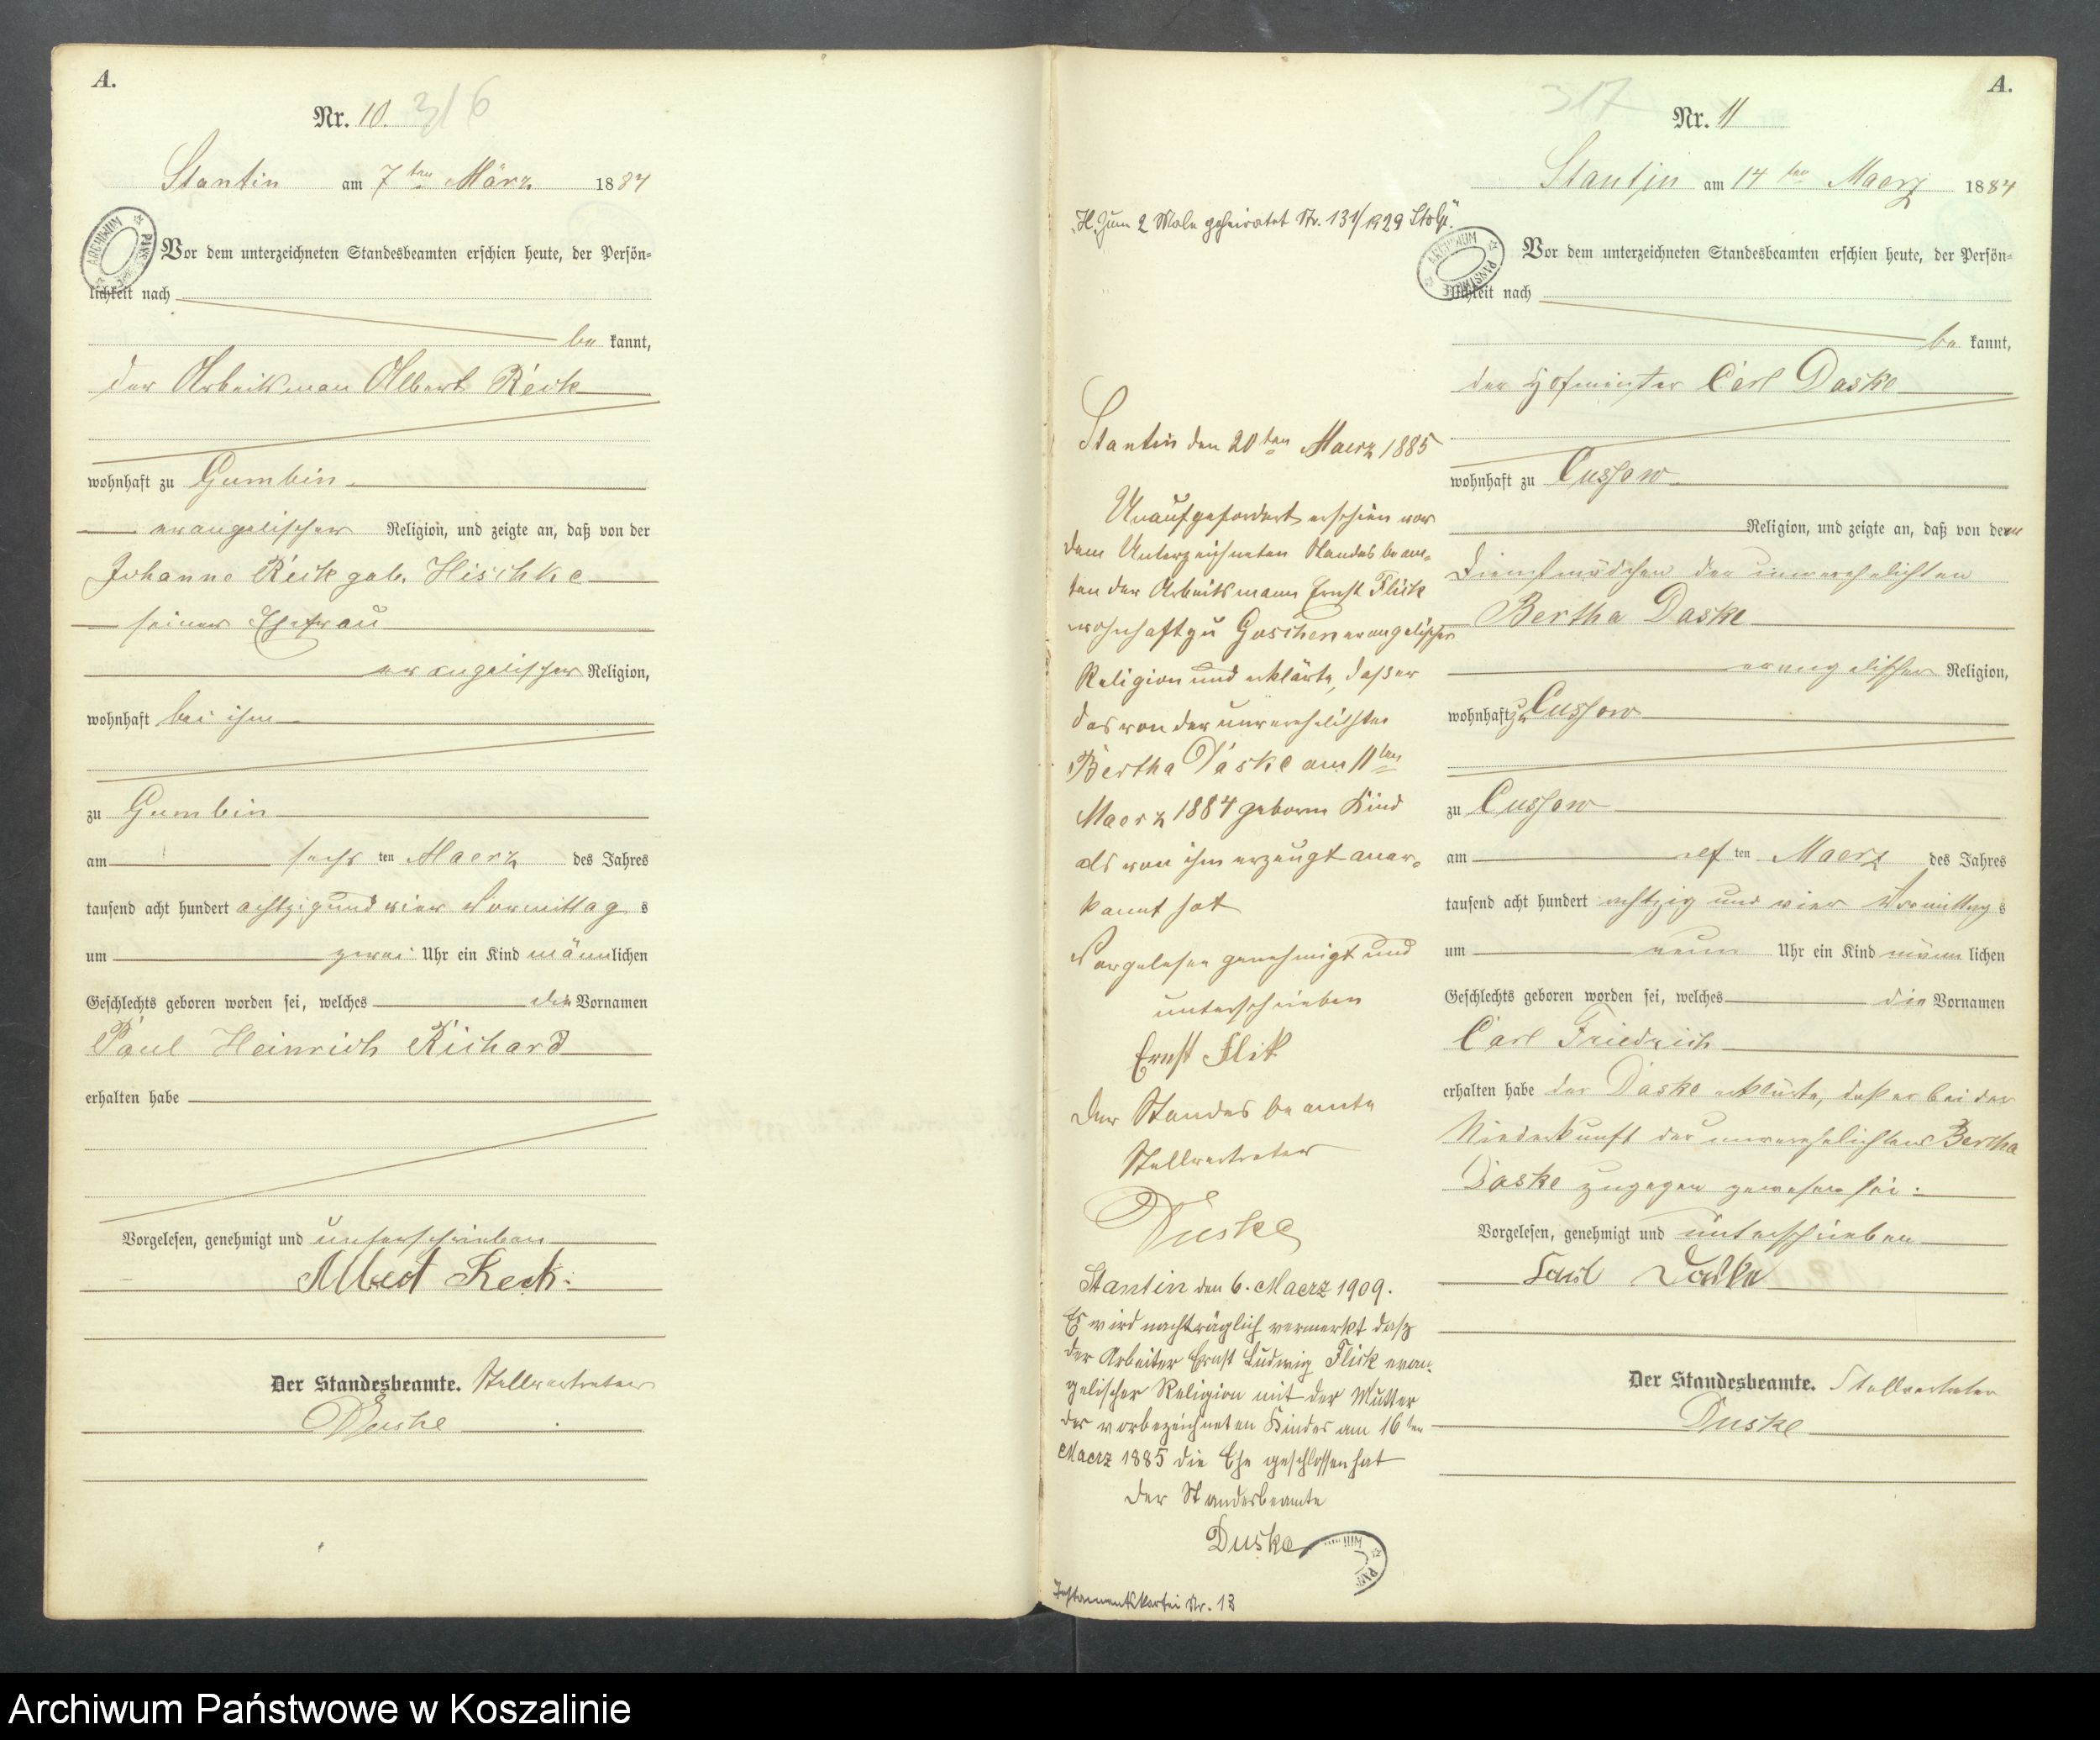 A.
Nr. 10. 316
Stantin am 7ten März 1884
Vor dem unterzeichneten Standesbeamten erschien heute, der Persön=
lichkeit nach
be kannt,
der Arbeitsman Albert Reck
wohnhaft zu Gumbin
evangelischer Religion, und zeigte an, daß von der
Johanne Reck geb. Hischke
seiner Ehefrau
evangelischer Religion,
wohnhaft bei ihm
zu Gumbin
am sechsten Maerz des Jahres
tausend acht hundert achtzig und vier Vormittags
um zwei Uhr ein Kind männlichen
Geschlechts geboren worden sei, welches die Vornamen
Paul Heinrich Richard
erhalten habe
Vorgelesen, genehmigt und unterschrieben
Albert Reck.
Der Standesbeamte. Stellvertreter
Duske
A.
317
Nr. 11
Stantin am 14ten Maerz 1884
H. Zum 2 Male geheiratet Nr. 131/1929 Stolp.
Vor dem unterzeichneten Standesbeamten erschien heute, der Persön=
lichkeit nach
be kannt,
der Hofmeister Carl Daske
wohnhaft zu Cussow
Religion, und zeigte an, daß von dem
Dienstmädchen der unverehelichten
Bertha Daske
evangelischer Religion,
wohnhaft zu Cussow
zu Cussow
am elften Maerz des Jahres
tausend acht hundert achtzig und vier Vormittags
um neun Uhr ein Kind männlichen
Geschlechts geboren worden sei, welches die Vornamen
Carl Friedrich
erhalten habe der Daske erklärte, daß er bei der
Niederkunft der unverehelichten Bertha
Daske zugegen gewesen sei.
Vorgelesen, genehmigt und unterschrieben
Carl Daske
Der Standesbeamte. Stellvertreter
Duske
Stantin den 20ten Maerz 1885
Unaufgefordert erschien vor
dem Unterzeichneten Standesbeam=
ten der Arbeitsmann Ernst Flick
wohnhaft zu Goschen evangelischer
Religion und erklärte, daß er
das von der unverehelichten
Bertha Daske am 11ten
Maerz 1884 geboren Kind
als von ihm erzeugt aner=
kannt hat
Vorgelesen genehmigt und
unterschrieben
Ernst Flik
Der Standesbeamte
Stellvertreter
Duske
Stantin den 6. Maerz 1909.
Es wird nachträglich vermerkt daß
der Arbeiter Ernst Ludwig Flick evan=
gelischer Religion mit der Mutter
des vorbezeichneten Kindes am 16ten
Maerz 1885 die Ehe geschlossen hat
Der Standesbeamte
Duske
Testamentskartei Nr. 13
Archiwum Państwowe w Koszalinie